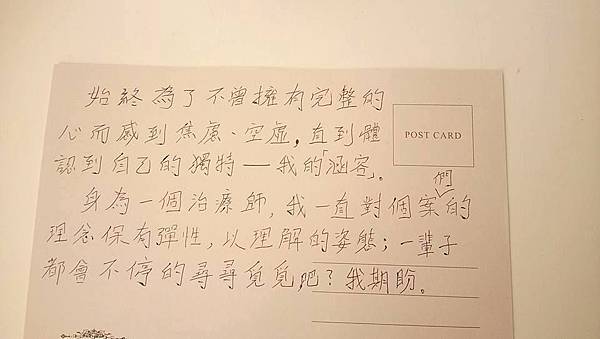 始終為了不曾擁有完整的
心而感到焦慮、空虛,直到體
認到自己的獨特—我的「涵容」。
POST CARD
身為一個治療師,我一直對個案們的
理念保有彈性,以理解的姿態;一輩子
都會不停的尋尋覓覓吧?我期盼。